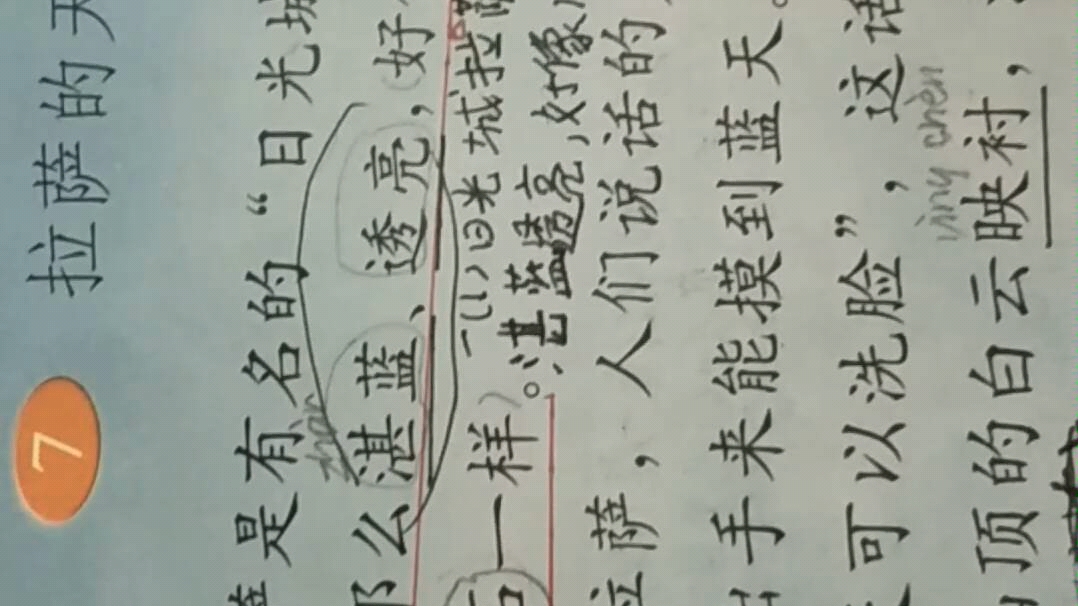 7
拉萨的天
是有名的“日光城
zhàn
么湛蓝、透亮，好
(1)日光城拉萨
一样。湛蓝透亮,好像
萨，人们说话的
手来能摸到蓝天。
可以洗脸”，这话
yìng chèn
顶的白云映衬，